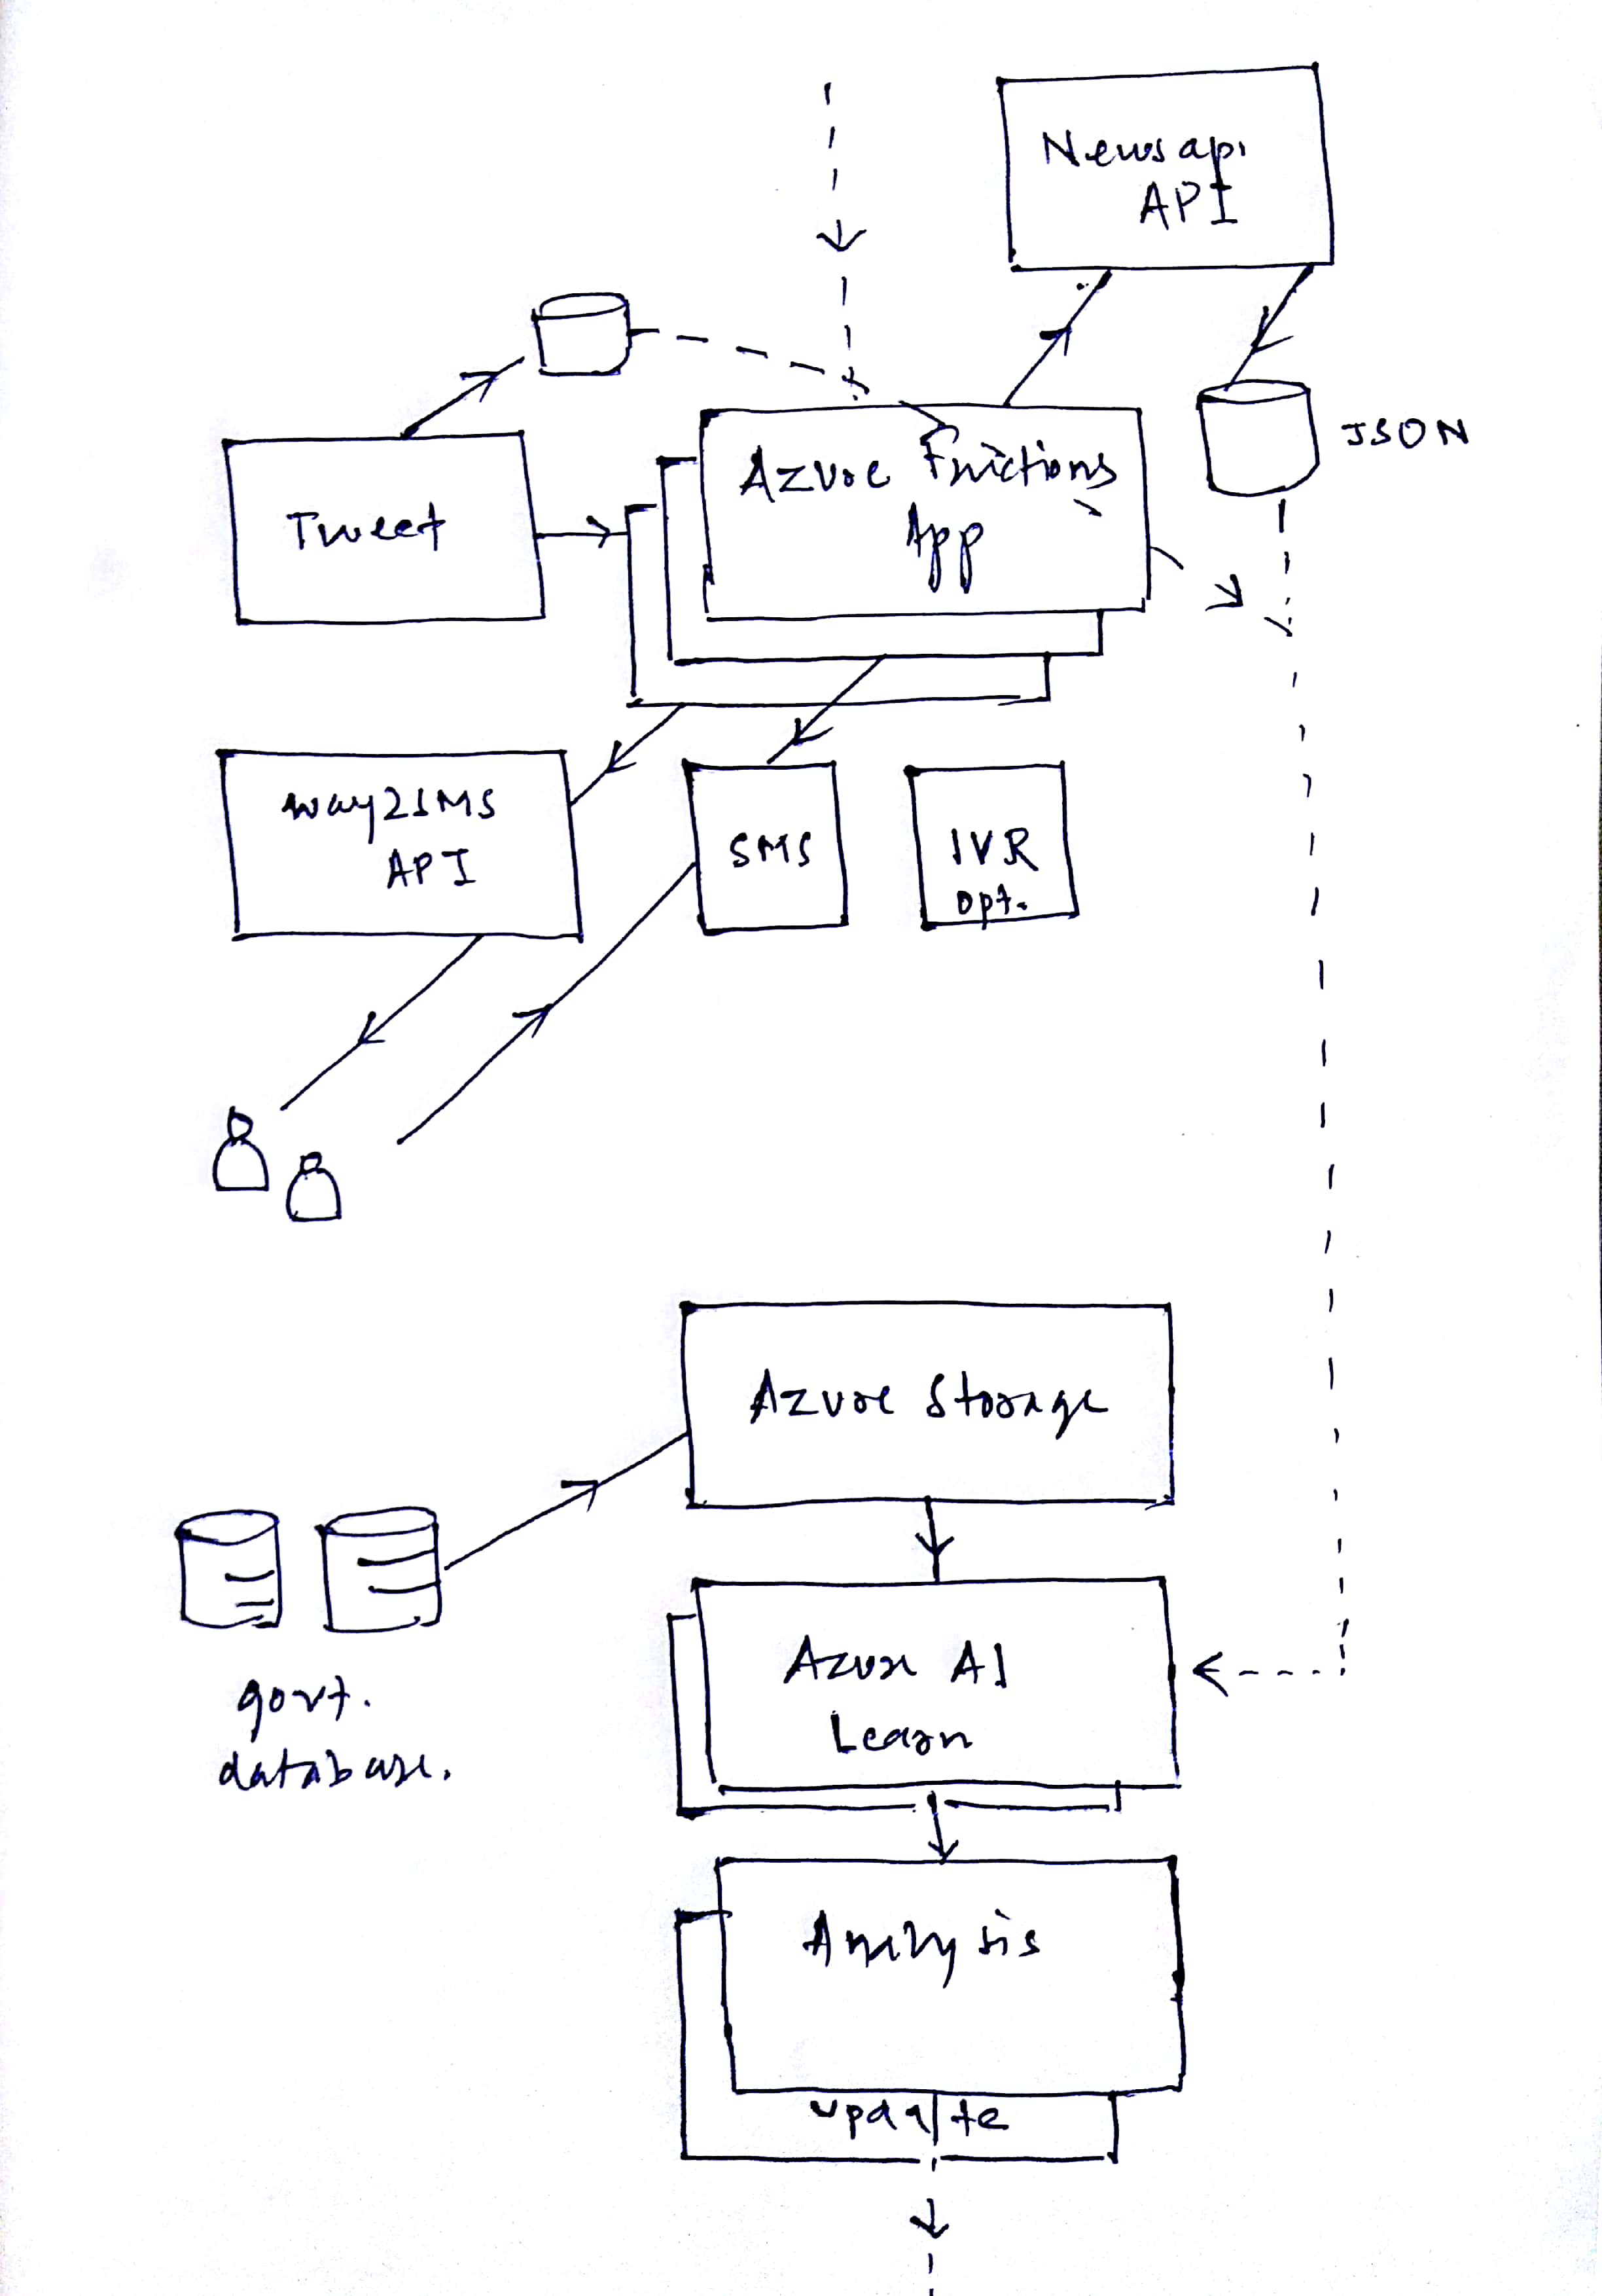 Newsapi
API
JSON
Azure Functions
App
Tweet
way2SMS
API
SMS
IVR
opt.
Azure Storage
govt.
database.
Azure AI
Learn
Analysis
update